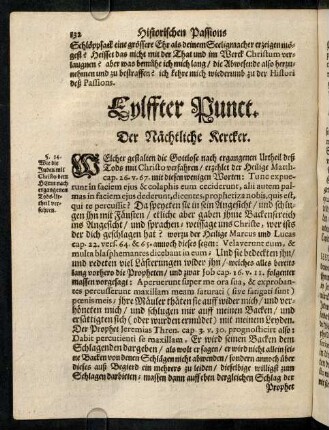 132 Historischen Passions
Schlöpffack eine grössere Ehr als deinem Seeligmacher erzeigen mö-
gest? Heisset das nicht mit der That und im Werck Christum ver-
laugnen? aber was bemühe ich mich lang / die Abwesende also herzu-
nehmen und zu bestraffen? ich kehre mich wiederumb zu der Histori
deß Passions.
Eylffter Punct.
Der Nächtliche Kercker.
§. 14.
Wie die
Juden mit
Christo dem
HErrn nach
ergangenem
Tods-Ur-
theil ver-
fahren.
WElcher gestalten die Gottlose nach ergangenen Urtheil deß
Tods mit Christo verfahren / erzehlet der Heilige Matth.
cap. 26. v. 67. mit diesen wenigen Worten: Tunc expue-
runt in faciem ejus & colaphis eum ceciderunt, alii autem pal-
mas in faciem ejus dederunt, dicentes, prophetiza nobis, quis est,
qui te percussit? Da speyeten sie in sein Angesicht / und schlu-
gen ihn mit Fäusten / etliche aber gaben ihme Backenstreich
ins Angesicht / und sprachen / weissage uns Christe / wer ists
der dich geschlagen hat? worzu der Heilige Marcus und Lucas
cap. 22. vers. 64. & 65. annoch dieses setzen: Velaverunt eum, &
multa blasphemantes dicebant in eum: Und sie bedeckten ihn /
und redeten viel Lösterungen wider ihn / welches alles bereits
lang vorhero die Propheten / und zwar Job cap. 16. v. 11. folgenter
massen vorgesagt: Aperuerunt super me ora sua, & exproban-
tes percusserunt maxillam meam saturati (sive satiati sunt)
poenis meis; ihre Mäuler thäten sie auff wider mich / und ver-
höneten mich / und schlugen mir auf meinen Backen / und
ersättigten sich (oder wurden ermüdet) mit meinem Leyden.
Der Prophet Jeremias Thren. cap. 3. v. 30. prognosticirt also:
Dabit percutienti se maxillam. Er wird seinen Backen dem
Schlagenden dargeben / als wolt er sagen / er wird nicht allein sei-
ne Backen von denen Schlägen nicht abwenden / sondern annoch über
dieses auß Begierd ein mehrers zu leiden / dieselbige willigst zum
Schlagen darbieten / massen dann auff eben dergleichen Schlag der
Prophet